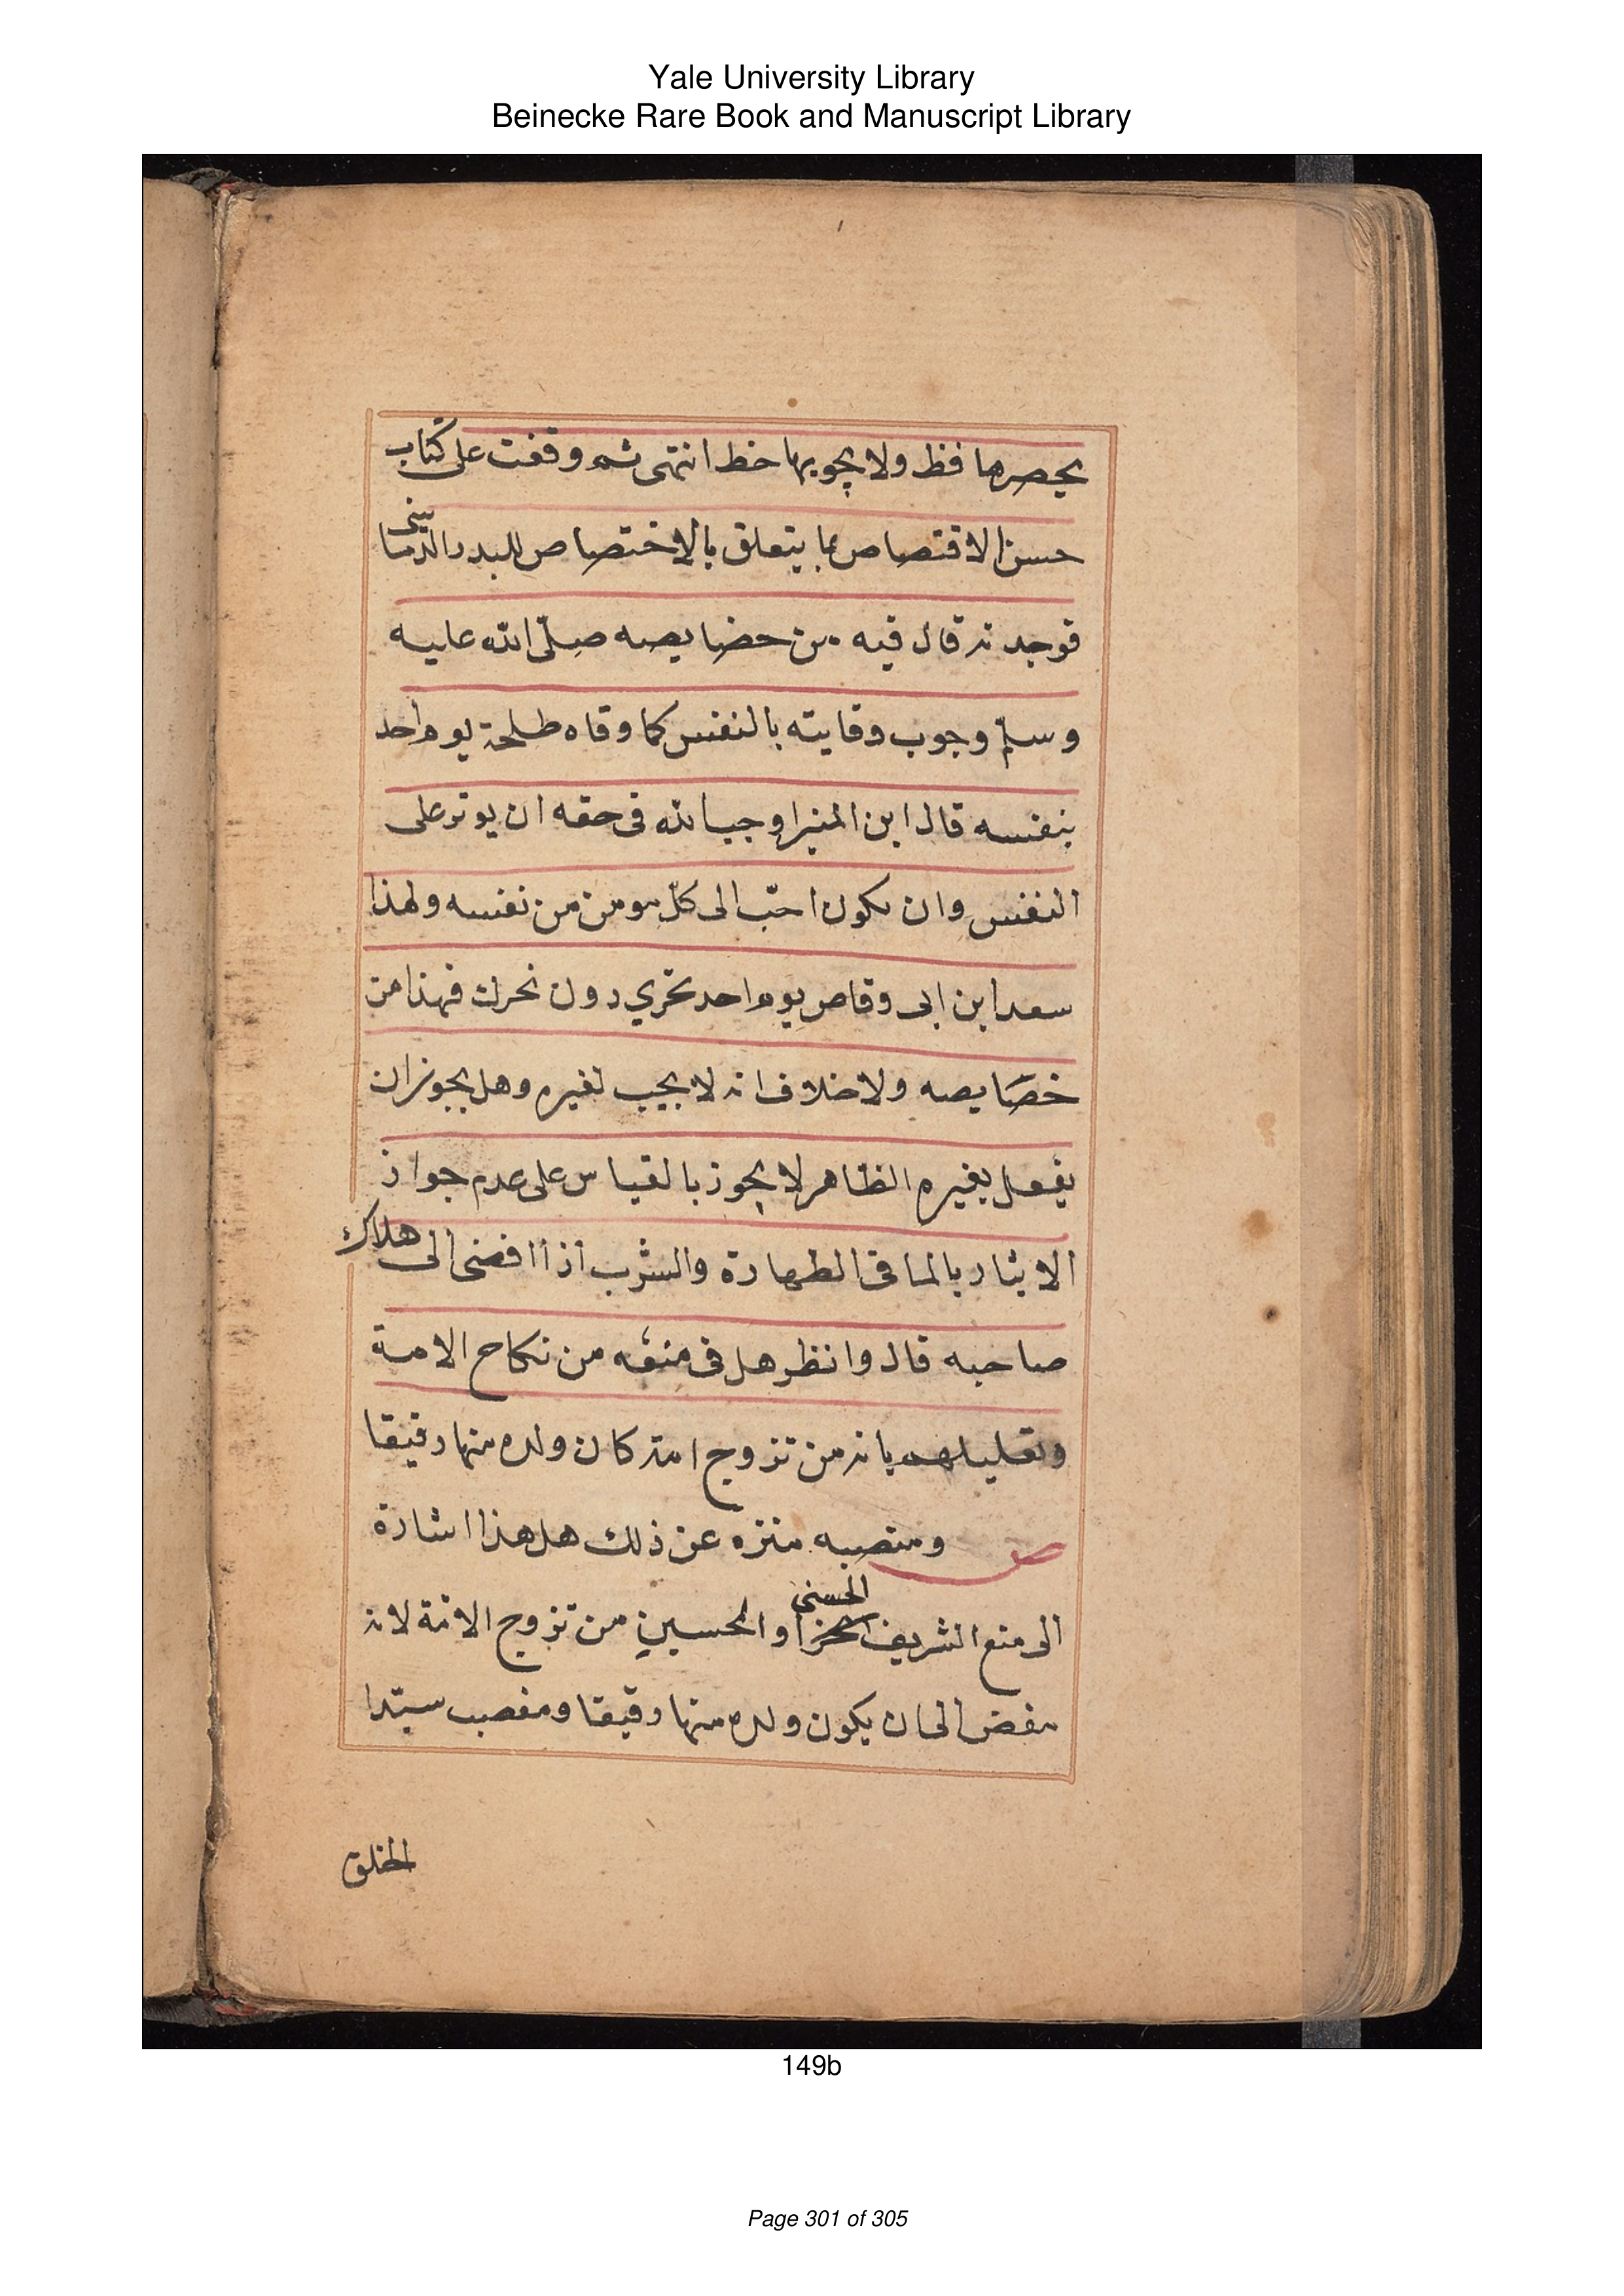 Yale University Library
Beinecke Rare Book and Manuscript Library
يحصرها فظ ولا يحويها خط انتهى ثم وقفت على كتاب
حسن الاقتصاص بما يتعلق بالاختصاص للبدر الدمامينى
فوجدته قال فيه من خصايصه صلّى الله عليه
وسلم وجوب وقايته بالنفس كما وقاه طلحة يوم احد
بنفسه قال ابن المنير اوجب الله فى حقه ان يوثر على
النفس وان يكون احبّ الى كلّ مومن من نفسه ولهذا
سعد ابن ابى وقاص يوم احد نحري دون نحرك فهذا من
خصَايصه ولا خلاف انه لا يجب لغيره وهل يجوز ان
يفعل بغيره الظاهر لا يجوز بالقياس على عدم جواز
الايثار بالما فى الطهارة والشرب اذا افضى الى هلاك
صاحبه قال وانظر هل فى منعه من نكاح الامة
وتعليلهم بانه من تزوج امة كان ولده منها رقيقا
ومنصبه منزه عن ذلك هل هذا اشارة
الى منع الشريف الحسنى او الحسينى من تزوج الامة لانه
مفض الى ان يكون ولده منها رقيقا ومنصب سيّد
الخلق
149b
Page 301 of 305